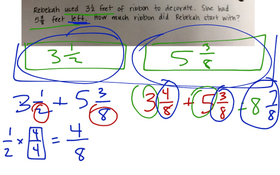 Rebekah used 3½ feet of ribbon to decorate. She had
5⅜ feet left. How much ribbon did Rebekah start with?
3 1/2
5 3/8
3 1/2 + 5 3/8
3 4/8 + 5 3/8 = 8 7/8
1/2 × 4/4 = 4/8